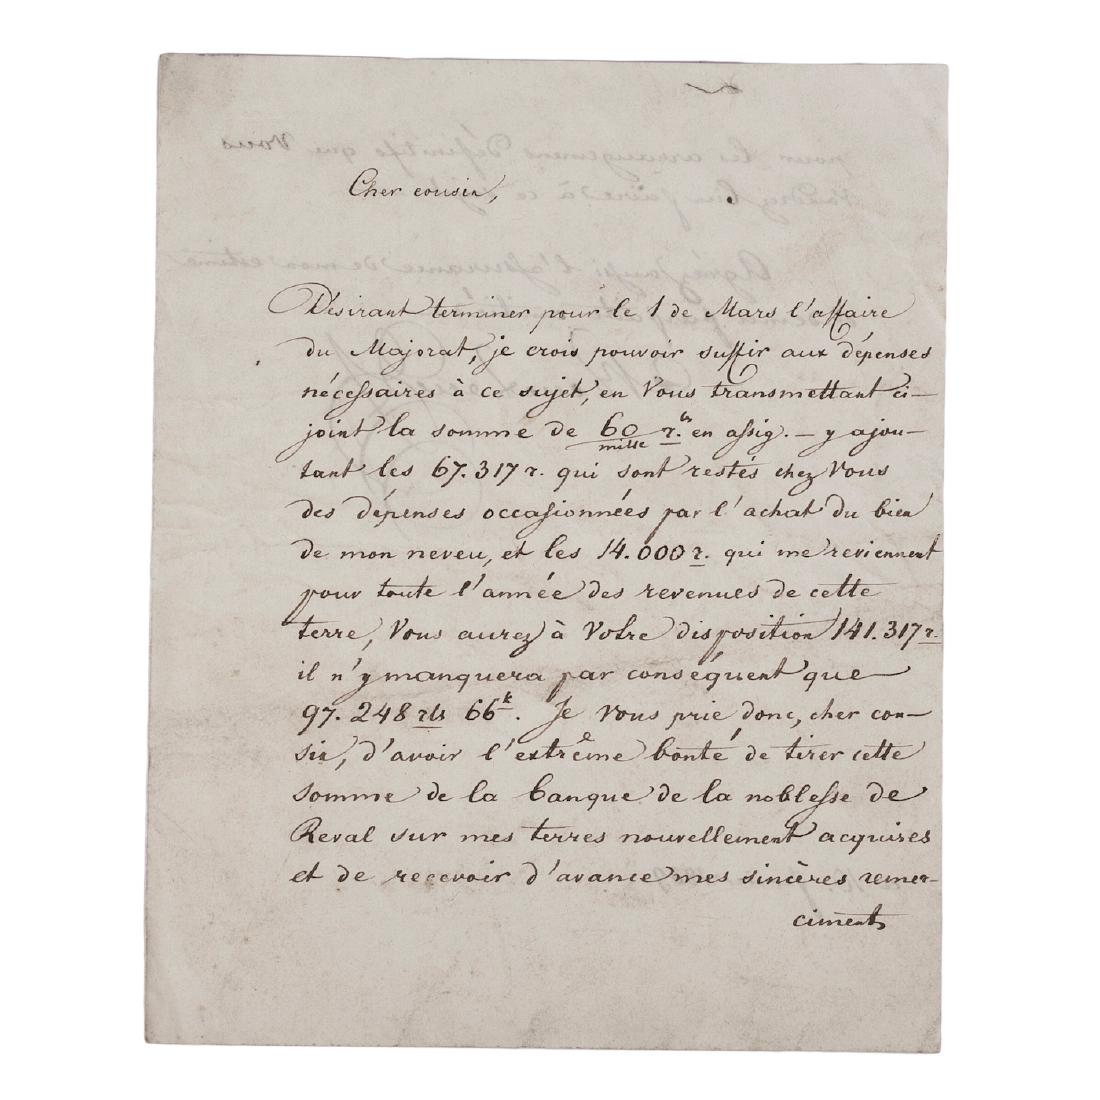 Cher cousin,
Désirant terminer pour le 1 de Mars l'affaire
du Majorat, je crois pouvoir suffir aux dépenses
nécessaires à ce sujet, en Vous transmettant ci-
joint la somme de 60 mille r. en assig. — y ajou-
tant les 67.317 r. qui sont restés chez Vous
des dépenses occasionnées par l'achat du bien
de mon neveu, et les 14.000 r. qui me reviennent
pour toute l'année des revenues de cette
terre, Vous aurez à Votre disposition 141.317 r.
il n'y manquera par conséquent que
97.248 rls 66 k. Je Vous prie donc, cher cou-
sin, d'avoir l'extrême bonté de tirer cette
somme de la banque de la noblesse de
Reval sur mes terres nouvellement acquires
et de recevoir d'avance mes sincères remer-
ciments